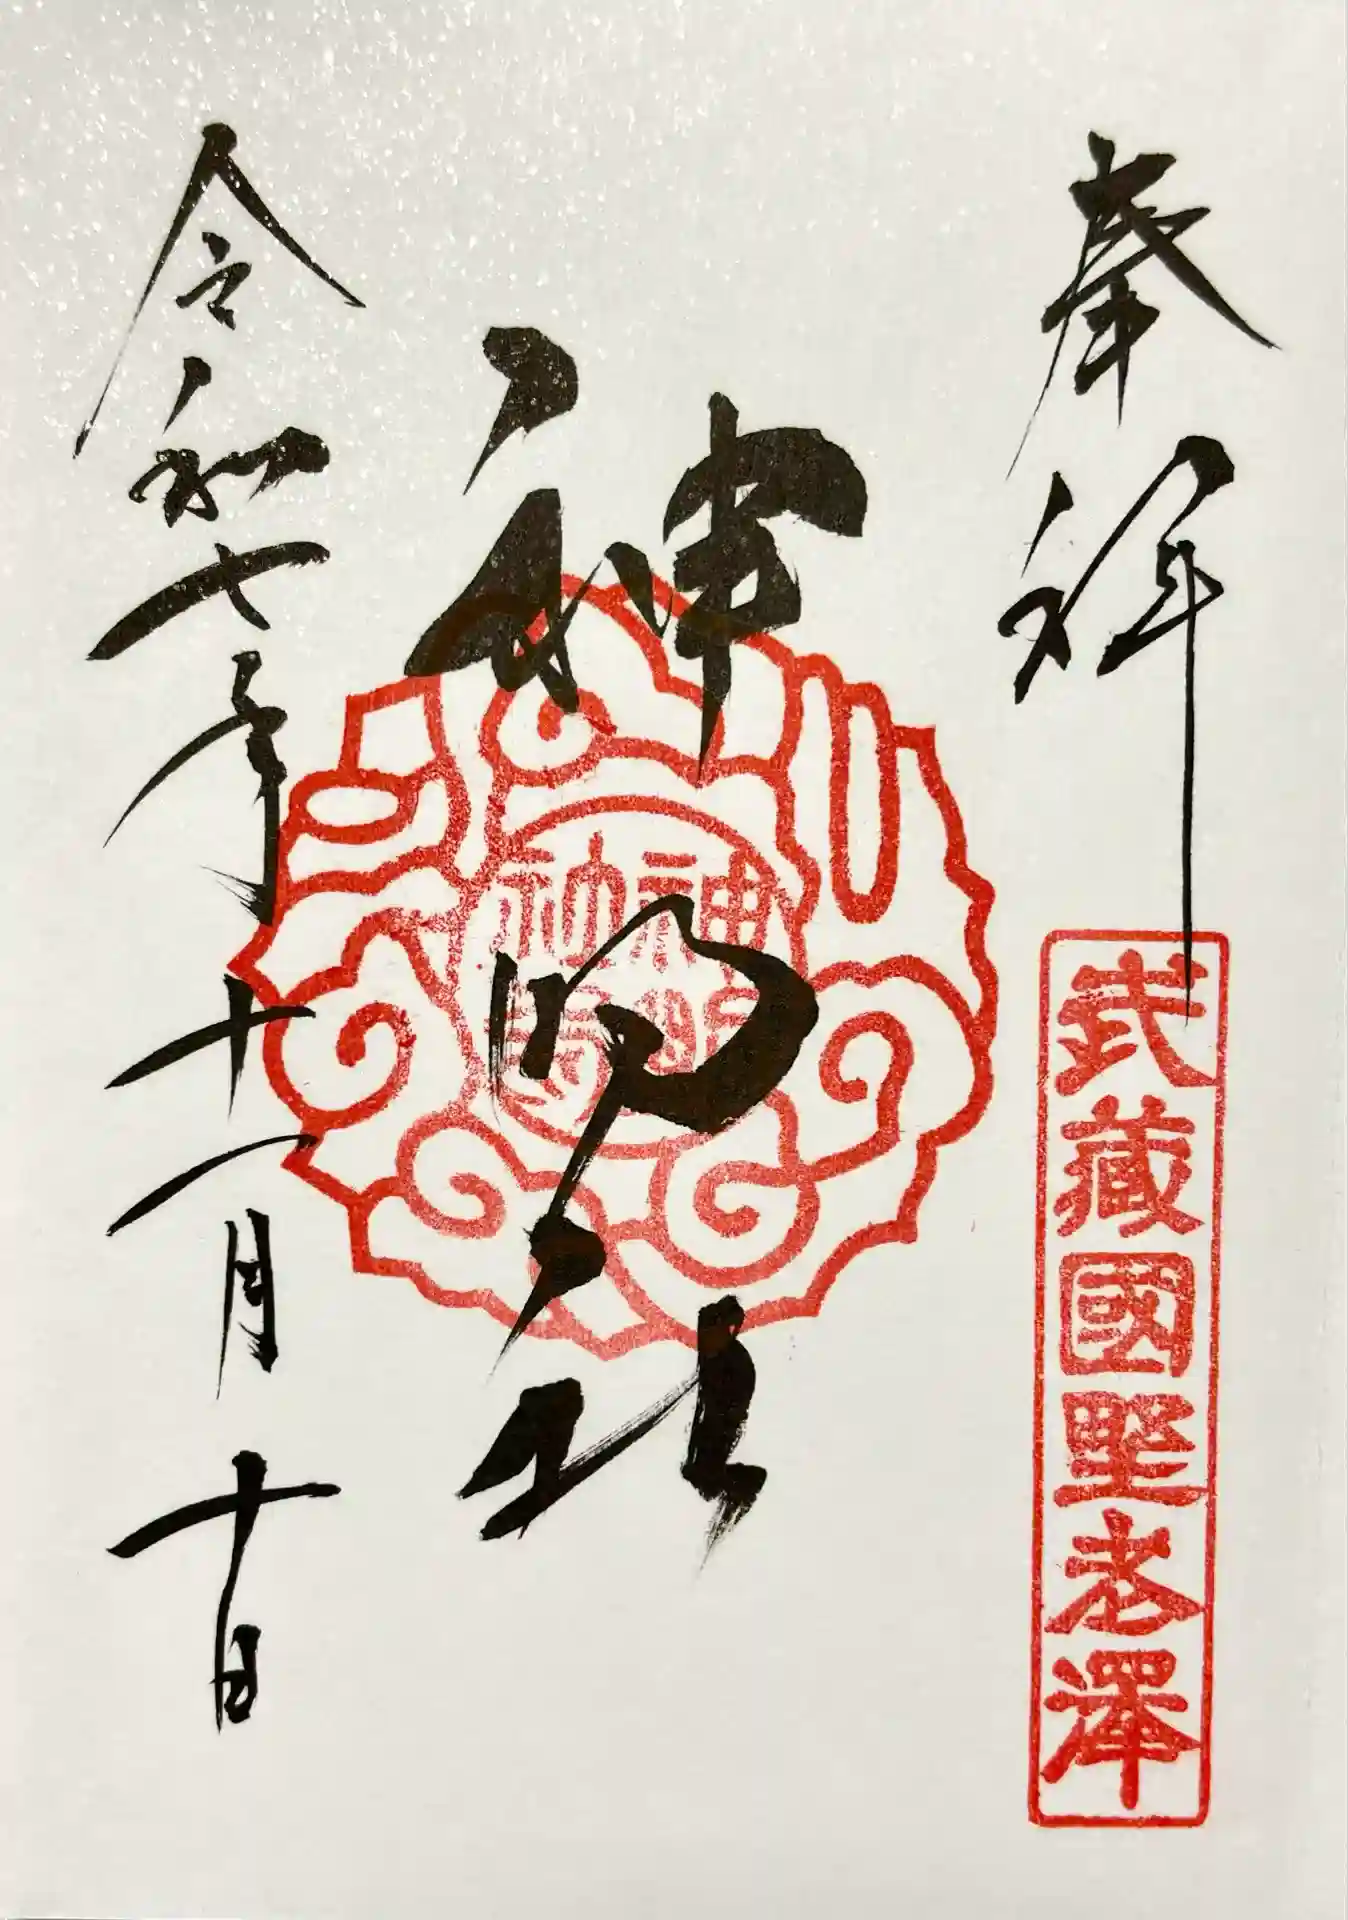 奉拝
武藏國野老澤
神明社
令和七年十一月十日